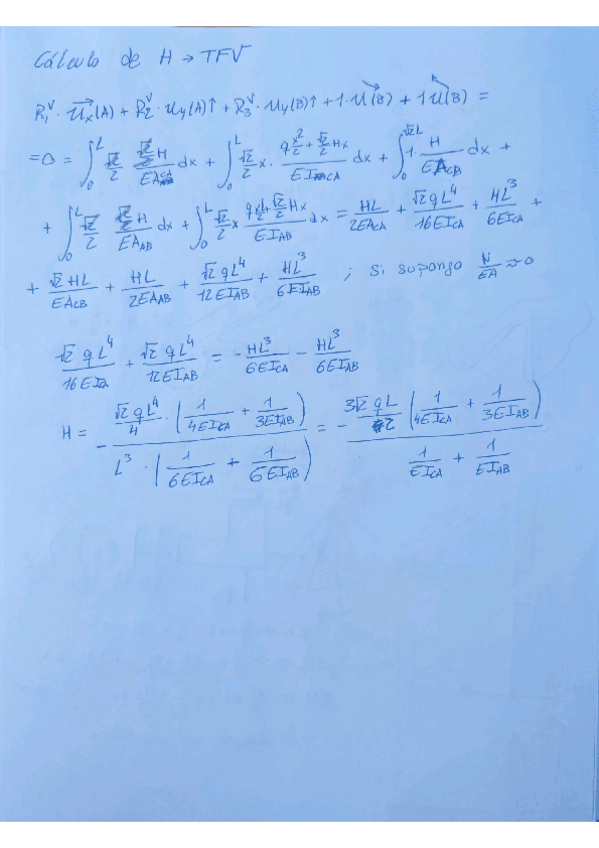 Cálculo de H → TFV
R₁ⱽ · u⃗ₓ(A) + R₂ⱽ · u_y(A)↑ + R₃ⱽ · u_y(B)↑ + 1 · u⃗(B) + 1 u⃖(B) =
= 0 = ∫₀ᴸ √2/2 · (√2/2 H)/(EA_CA) dx + ∫₀ᴸ √2/2 x · (q x²/2 + √2/2 Hx)/(EI_CA) dx + ∫₀^(√2L) 1 · H/(EA_CB) dx +
+ ∫₀ᴸ √2/2 · (√2/2 H)/(EA_AB) dx + ∫₀ᴸ √2/2 x (qxL/2 + √2/2 Hx)/(EI_AB) dx = HL/(2EA_CA) + √2 qL⁴/(16EI_CA) + HL³/(6EI_CA) +
+ √2 HL/(EA_CB) + HL/(2EA_AB) + √2 qL⁴/(12EI_AB) + HL³/(6EI_AB) ; Si supongo N/EA ≈ 0
√2 qL⁴/(16EI_CA) + √2 qL⁴/(12EI_AB) = - HL³/(6EI_CA) - HL³/(6EI_AB)
H = - (√2 qL⁴/4 · (1/(4EI_CA) + 1/(3EI_AB)))/(L³ · (1/(6EI_CA) + 1/(6EI_AB))) = - (3√2 qL/2 (1/(4EI_CA) + 1/(3EI_AB)))/(1/(EI_CA) + 1/(EI_AB))